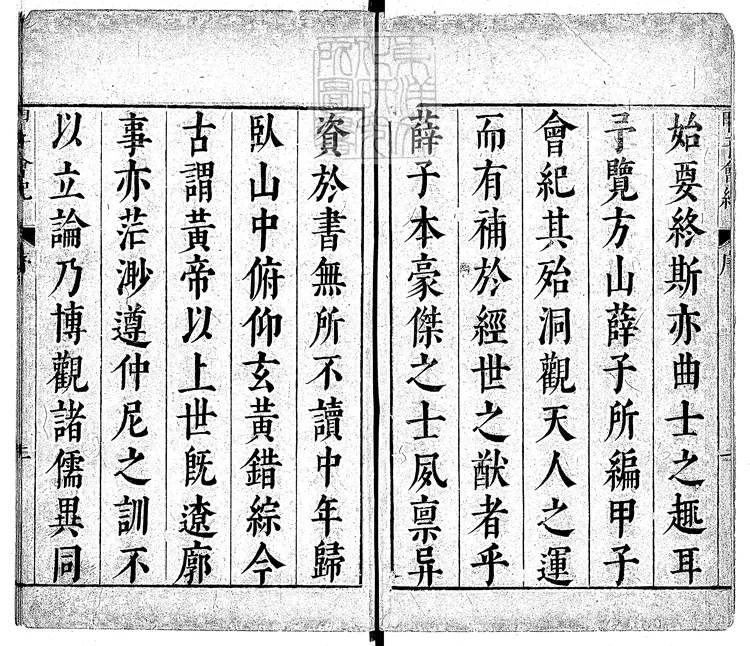 始要終斯亦曲士之趣耳
予覽方山薛子所編甲子
會紀其殆洞觀天人之運
而有補於經世之猷者乎
薛子本豪傑之士夙稟异
資於書無所不讀中年歸
臥山中俯仰玄黃錯綜今
古謂黃帝以上世既遼廓
事亦茫渺遵仲尼之訓不
以立論乃博觀諸儒異同
甲子會紀
序
三